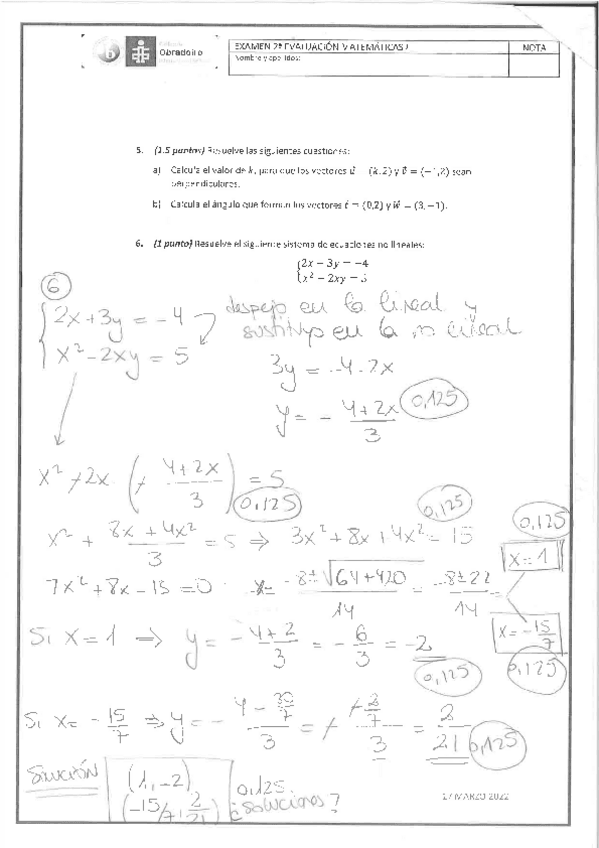 Obradoiro
EXAMEN 2ª EVALUACIÓN MATEMÁTICAS I
NOTA
Nombre y apellidos:
5. (1.5 puntos) Resuelve las siguientes cuestiones:
a) Calcula el valor de k, para que los vectores u⃗ = (k,2) y v⃗ = (−1,2) sean
perpendiculares.
b) Calcula el ángulo que forman los vectores t⃗ = (0,2) y w⃗ = (3,−1).
6. (1 punto) Resuelve el siguiente sistema de ecuaciones no lineales:
2x − 3y = −4
x² − 2xy = 5
6
2x+3y = -4
x² - 2xy = 5
despejo en la lineal y
sustituyo en la no lineal
3y = -4-2x
y = - (4+2x)/3 0,125
x² - 2x (- (4+2x)/3) = 5
0,125
x² + (8x+4x²)/3 = 5 ⇒ 3x²+8x+4x² = 15
0,125
7x²+8x-15=0 x = (-8±√(64+420))/14 = (-8±22)/14 =
0,125
x=1
x=-15/7
0,125
Si x=1 ⇒ y = - (4+2)/3 = - 6/3 = -2
0,125
Si x = -15/7 ⇒ y = - (4 - 30/7)/3 = - (-2/7)/3 = 2/21 0,125
Solución
(1,-2)
(-15/7, 2/21)
0,125
¿soluciones?
17 MARZO 2022